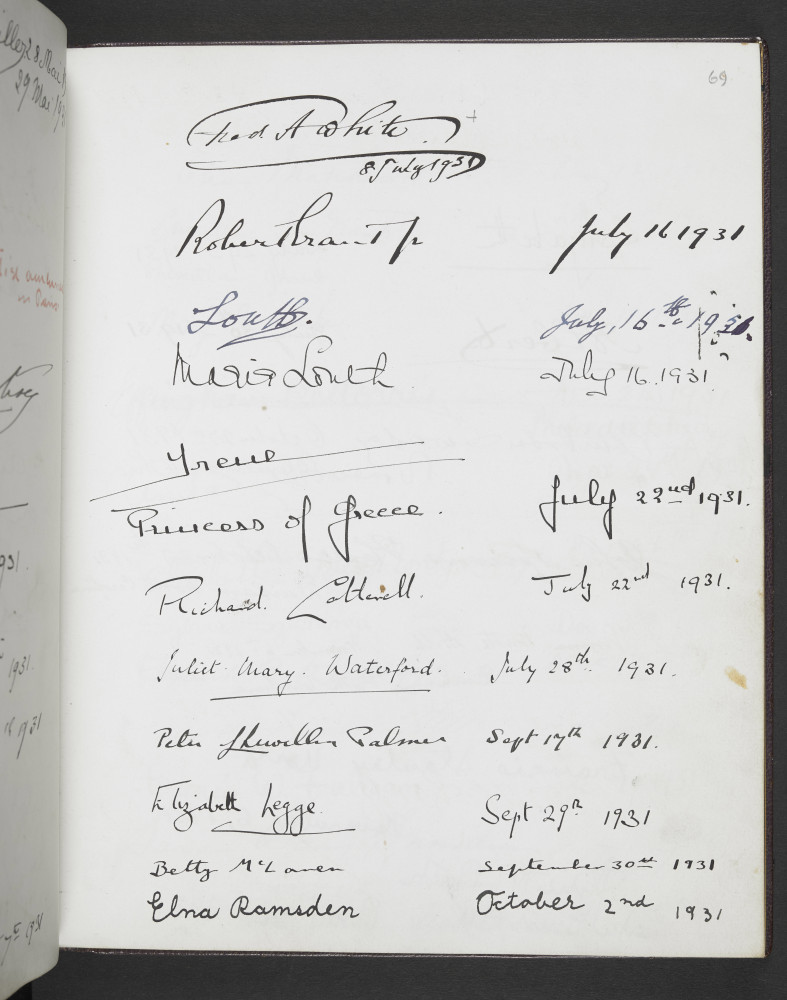 69
Fred A White.
8 July 1931
Robert Grant Jr July 16 1931
Louth. July, 16th 1931.
Maria Louth July 16. 1931
Irene
Princess of Greece. July 22nd 1931.
Richard Cotterell. July 22nd 1931.
Juliet Mary Waterford. July 28th 1931.
Peter Llewellen Palmer Sept 17th 1931.
Elizabeth Legge Sept 29th 1931
Betty McLaren September 30th 1931
Elna Ramsden October 2nd 1931
28 Mar
29 Mar
in Paris
931.
1931.
1931